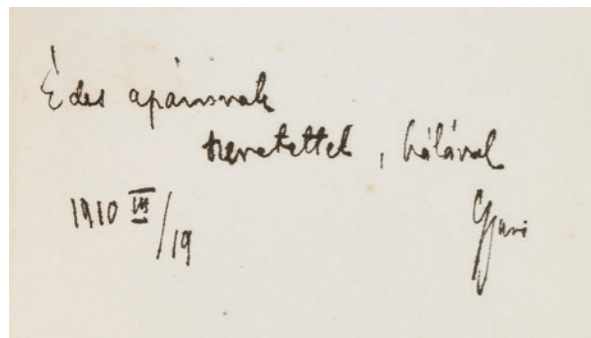 Édes apámnak
szeretettel, hálával
1910 III/19 Gyuri